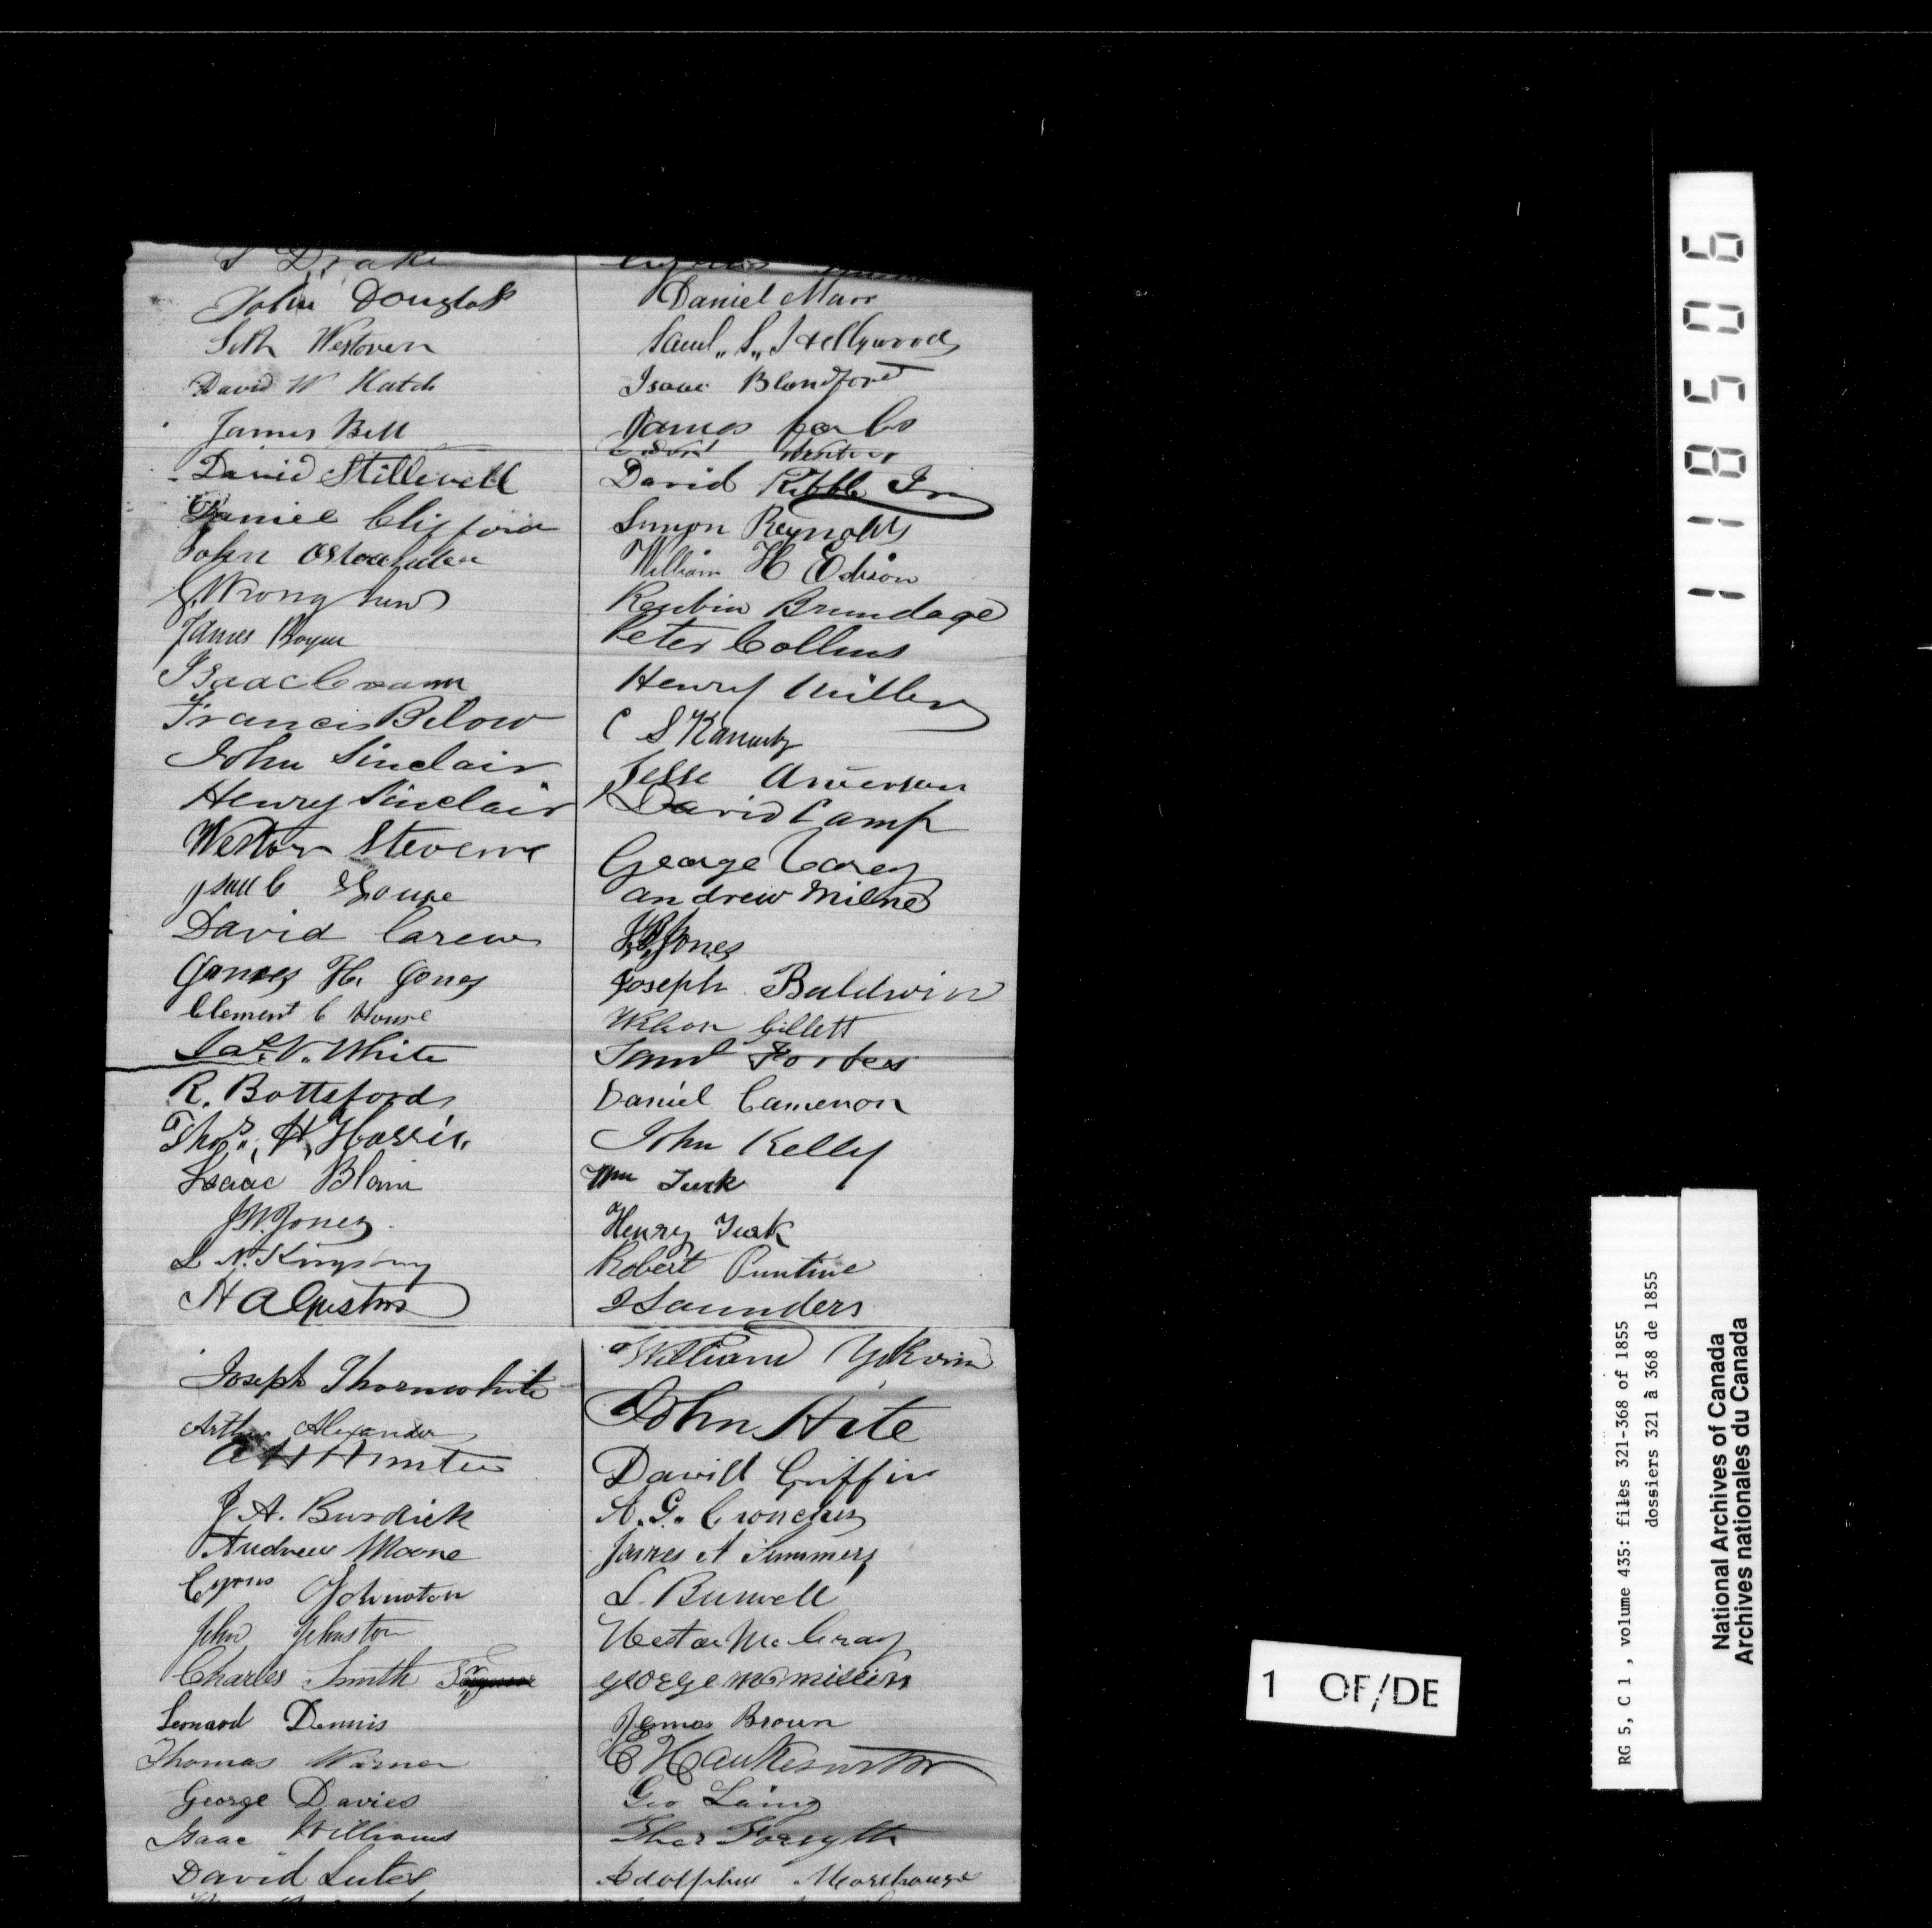 Drake
John Douglas
Seth Westover
David W Hatch
James Bell
David Stillwell
Daniel Clifford
John
G. Wrong
James Boyer
Isaac Crann
Francis Below
John Sinclair
Henry Sinclair
Weston Stevens
House
David Carew
James H. Jones
Clement C House
Jas. V. White
R. Bottsford
Thos. H. Harris
Isaac Blain
J W. Jones
L N. Kingsbury
H A
Joseph Thornwhite
Arthur Alexander
A H Hunter
J. A. Burdick
Andrew Moore
Cyrus Johnston
John Johnston
Charles Smith
Leonard Dennis
Thomas Warner
George Davies
Isaac Williams
David Lutes
Daniel Marr
Saml. S. Hellywood
Isaac Blandford
James
David Ribble Jr
Simon Reynolds
William H Edison
Reubin Brundage
Peter Collins
Henry Miller
C S
Jesse Anderson
David Camp
George Carey
Andrew Milne
Jones
Joseph Baldwin
Wilson Gillett
Saml Forbes
Daniel Cameron
John Kelly
Wm Turk
Henry Turk
Robert Puntine
J Saunders
William
John Hite
David Griffin
A. G. Croucher
James A Summers
L. Burwell
Hector McCray
George McMillin
James Brown
E
Geo Laing
Forsyth
Adolphus Morehouse
118506
1 OF/DE
RG 5, C 1, volume 435: files 321-368 of 1855
dossiers 321 à 368 de 1855
National Archives of Canada
Archives nationales du Canada